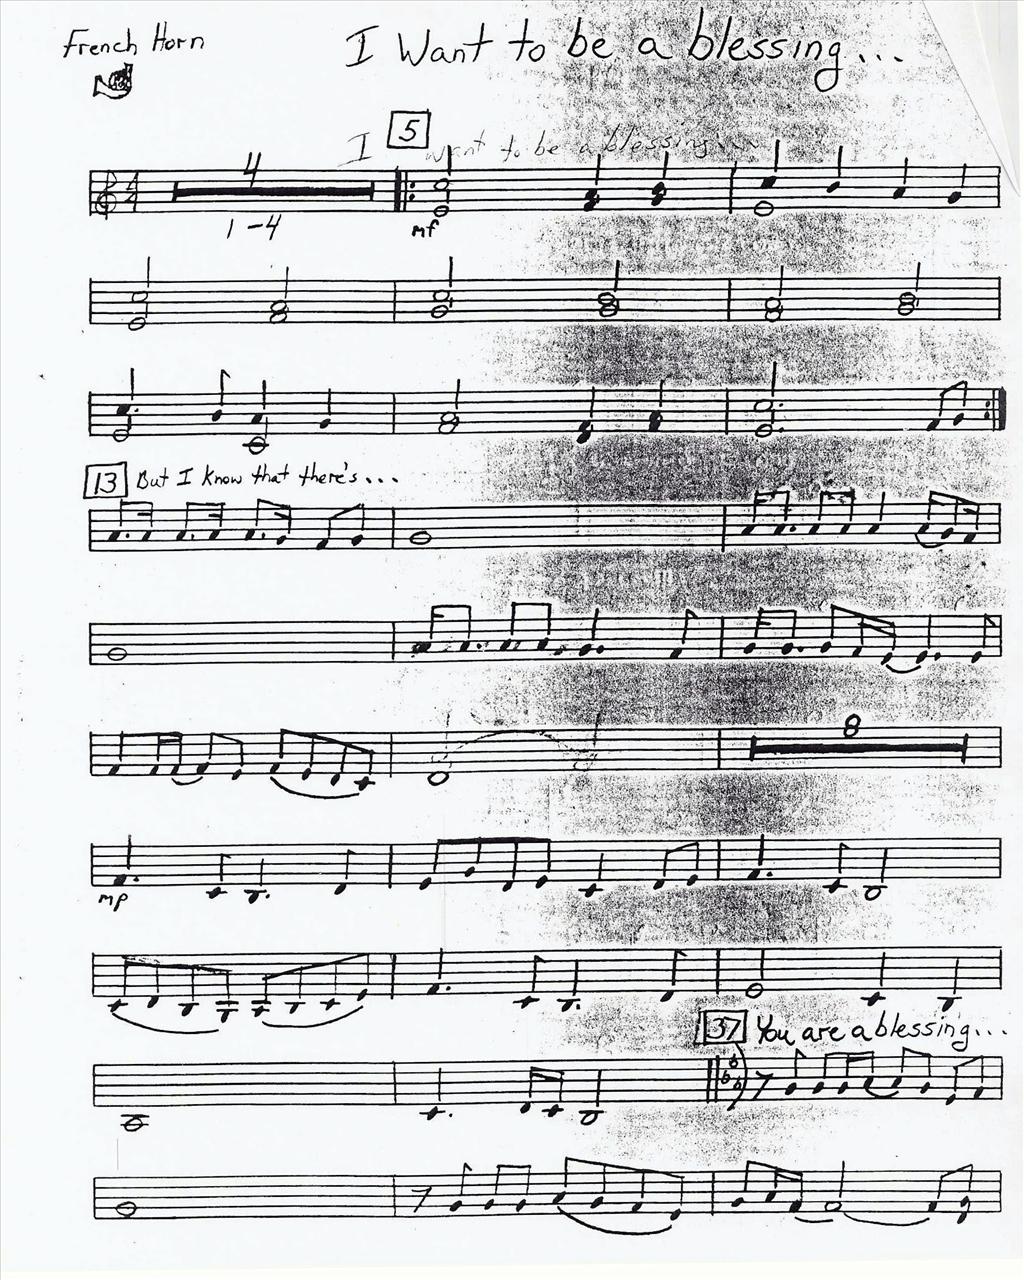 French Horn
I Want to be a blessing...
5
I want to be a blessing...
4
4
4
1-4
mf
13 But I know that there's...
8
mp
37 You are a blessing...